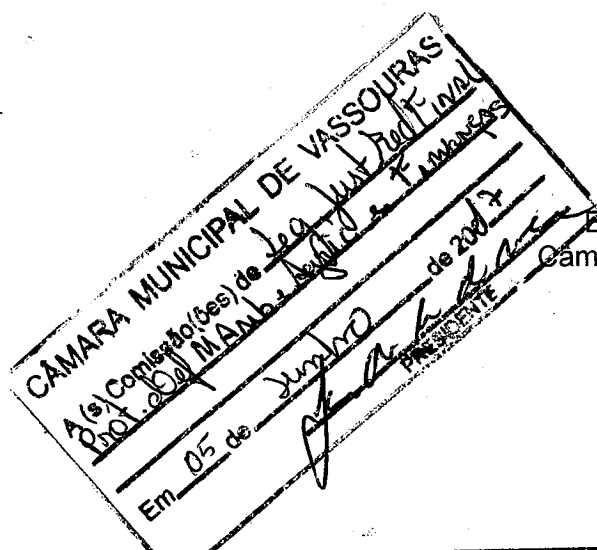 CÂMARA MUNICIPAL DE VASSOURAS
A(s) Comissão(ões) de Leg. Just. Red. Final
Prot. Def. M Amb. e Finanças
Em 05 de Junho de 2017
PRESIDENTE
Câm